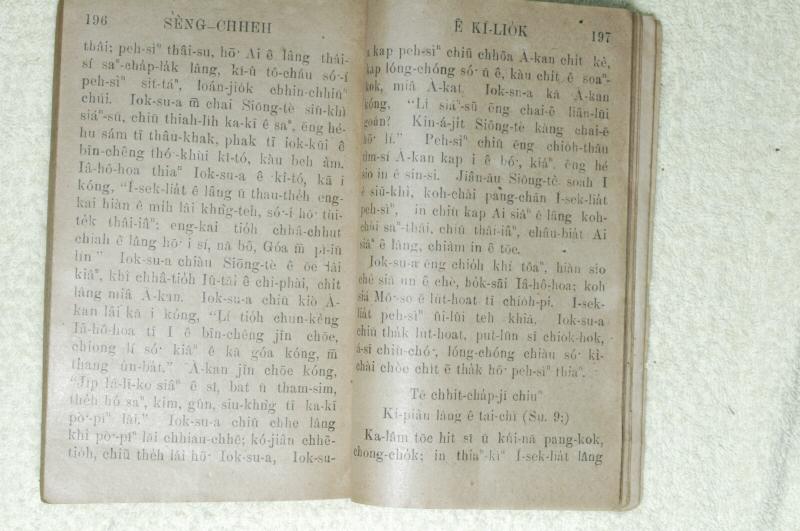 196 SÈNG-CHHEH
thâi; peh-sìⁿ thâi-su, hō͘ Ai ê lâng thâi-
sí saⁿ-cha̍p-la̍k lâng, kì-û tô-cháu só͘-í
peh-sìⁿ sit-táⁿ, loán-jio̍k chhin-chhiūⁿ
chúi. Iok-su-a m̄ chai Siōng-tè siū-khì
siáⁿ-sū, chiū thiah-li̍h ka-kī ê saⁿ, ēng hé-
hu sám tī thâu-khak, phak tī iok-kūi ê
bīn-chêng thó͘-khùi kî-tó, kàu beh àm.
Iâ-hô-hoa thiaⁿ Iok-su-a ê kî-tó, kā i
kóng, "Í-sek-lia̍t ê lâng ū thau-the̍h eng-
kai hiàn ê mi̍h lâi khǹg-teh, só͘-í hō͘ tùi-
te̍k thâi-iâⁿ; eng-kai tio̍h chhâ-chhut
chiah ê lâng hō͘ i sí, nā bô, Góa m̄ pì-iū
lín" Iok-su-a chiàu Siōng-tè ê ōe lâi
kiâⁿ, khì chhâ-tio̍h Iû-tāi ê chi-phài, chi̍t
lâng miâ A-kan. Iok-su-a chiū kiò A-
kan lâi kā i kóng, "Lí tio̍h chun-kèng
Iâ-hô-hoa tī I ê bīn-chêng jīn chōe,
chiong lí só͘ kiâⁿ ê kā góa kóng, m̄
thang ún-ba̍t." A-kan jīn chōe kóng,
"Ji̍p Iâ-lī-ko siâⁿ ê sî, bat ū tham-sim,
the̍h hó saⁿ, kim, gûn, siu-khǹg tī ka-kī
pò͘-pîⁿ lāi." Iok-su-a chiū chhe lâng
khì pò͘-pîⁿ lāi chhiau-chhē; kó-jiân chhē-
tio̍h, chiū the̍h lâi hō͘ Iok-su-a, Iok-su-
Ê KÌ-LIO̍K 197
a kap peh-sìⁿ chiū chhōa A-kan chi̍t kê,
kap lóng-chóng só͘ ū ê, kàu chi̍t ê soaⁿ-
kok, miâ A-kat. Iok-su-a kā A-kan
kóng, "Lí siáⁿ-sū ēng chai-ē liân-lūi
goán? Kin-á-ji̍t Siōng-tè kàng chai-ē
hō͘ lí." Peh-sìⁿ chiū ēng chio̍h-thâu
tìm-sí A-kan kap i ê bó͘, kiáⁿ, ēng hé
sio in ê sin-si. Jiân-āu Siōng-tè soah I
ê siū-khì, koh-chài pang-chān Í-sek-lia̍t
peh-sìⁿ, in chiū kap Ai siâⁿ ê lâng koh-
chài saⁿ-thâi, chiū thâi-iâⁿ, châu-bia̍t Ai
siâⁿ ê lâng, chiàm in ê tōe.
Iok-su-a ēng chio̍h khí tôaⁿ, hiàn sio
chè siā un ê chè, ho̍k-sāi Iâ-hô-hoa; koh
siá Mô͘-se ê lu̍t-hoat tī chio̍h-pi. Í-sek-
lia̍t peh-sìⁿ ûi-lûi teh khiā. Iok-su-a
chiū tha̍k lu̍t-hoat, put-lūn sī chiok-hok,
á-sī chiù-chó͘, lóng-chóng chiàu só͘ kì-
chài chòe chi̍t ē tha̍k hō͘ peh-sìⁿ thiaⁿ.
Tē chhit-cha̍p-jī chiuⁿ
Kî-piàn lâng ê tāi-chì (Su. 9;)
Ka-lâm tōe hit sî ū kúi-nā pang-kok,
chong-cho̍k; in thiaⁿ-kìⁿ Í-sek-lia̍t lâng